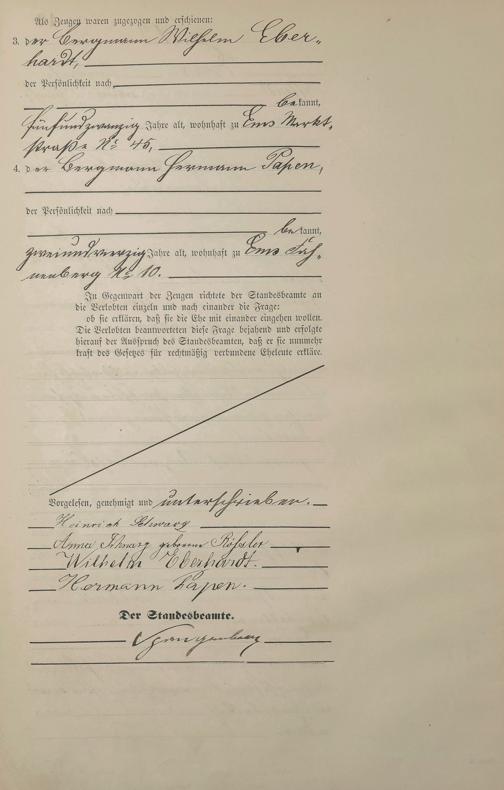 Als Zeugen waren zugezogen und erschienen:
3. der Bergmann Wilhelm Eber-
hardt,
der Persönlichkeit nach
bekannt,
fünfundzwanzig Jahre alt, wohnhaft zu Ems Markt-
straße No 45,
4. der Bergmann Hermann Papen,
der Persönlichkeit nach
bekannt,
zweiundvierzig Jahre alt, wohnhaft zu Ems
nenberg No 10.
In Gegenwart der Zeugen richtete der Standesbeamte an
die Verlobten einzeln und nach einander die Frage:
ob sie erklären, daß sie die Ehe mit einander eingehen wollen.
Die Verlobten beantworteten diese Frage bejahend und erfolgte
hierauf der Ausspruch des Standesbeamten, daß er sie nunmehr
kraft des Gesetzes für rechtmäßig verbundene Eheleute erkläre.
Vorgelesen, genehmigt und unterschrieben.
Heinrich Schwarz
Anna Schwarz geborene Rößler
Wilhelm Eberhardt.
Hermann Papen.
Der Standesbeamte.
Spangenberg